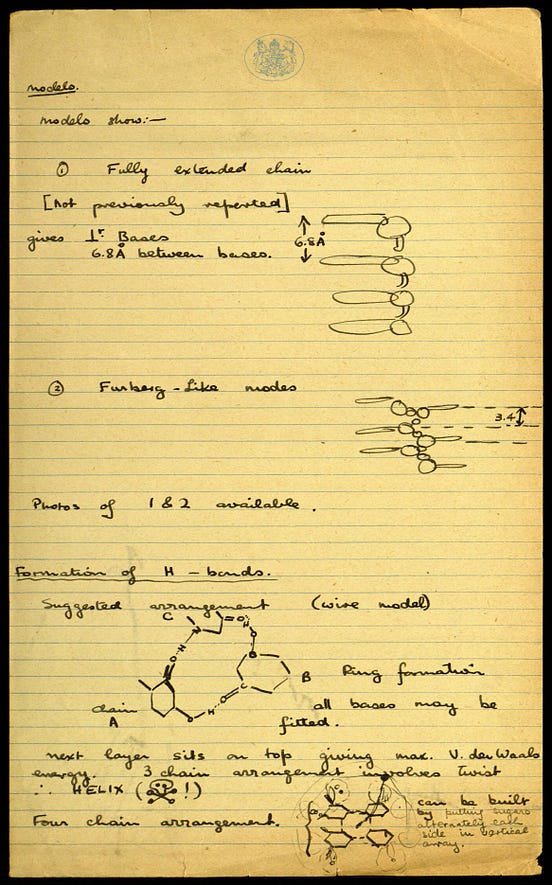 models.
models show:—
① Fully extended chain
[Not previously reported]
gives ⊥r Bases
6.8Å between bases.
6.8Å
② Furberg-like modes
3.4
Photos of 1 & 2 available.
Formation of H-bonds.
Suggested arrangement (wire model)
C
N
=O
H
O
H
O
B Ring formation
chain
A
O
H
O
C
all bases may be
fitted.
next layer sits on top giving max. V. der Waals
energy. 3 chain arrangement involves twist
∴ HELIX (☠!)
Four chain arrangement.
can be built
by putting sugars
alternately each
side in vertical
array.